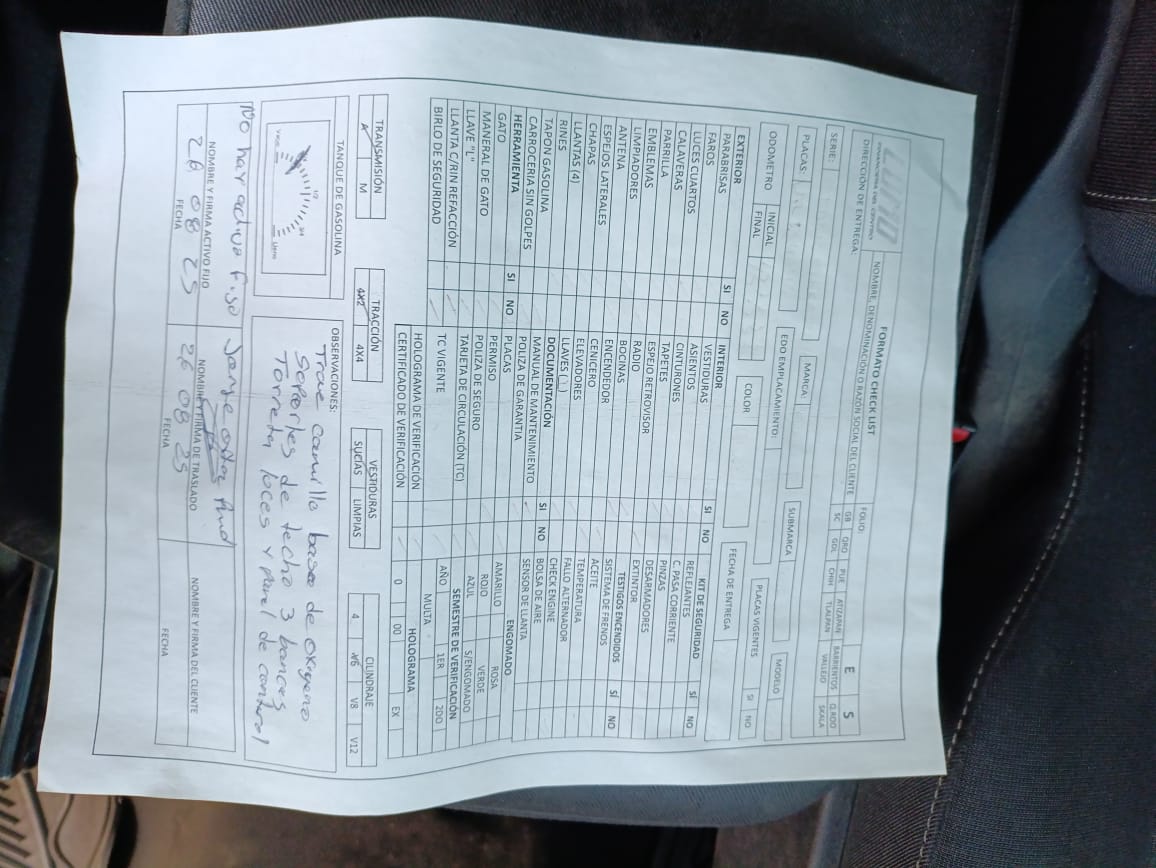 FORMATO CHECK LIST
FINANCIERA DEL CENTRO
NOMBRE, DENOMINACIÓN O RAZÓN SOCIAL DEL CLIENTE
FOLIO:
DIRECCIÓN DE ENTREGA:
GB QRO PUE ATIZAPAN BARRIENTOS Q.ROO
SC GDL CHIH TLALPAN VALLEJO SKALA
E S
SERIE:
PLACAS: MARCA: SUBMARCA MODELO
ODOMETRO INICIAL FINAL
EDO EMPLACAMIENTO:
COLOR
PLACAS VIGENTES SI NO
FECHA DE ENTREGA
EXTERIOR SI NO
PARABRISAS
FAROS
LUCES CUARTOS
CALAVERAS
PARRILLA
EMBLEMAS
LIMPIADORES
ANTENA
ESPEJOS LATERALES
CHAPAS
LLANTAS (4)
RINES
TAPON GASOLINA
CARROCERIA SIN GOLPES
HERRAMIENTA SI NO
GATO
MANERAL DE GATO
LLAVE "L"
LLANTA C/RIN REFACCIÓN
BIRLO DE SEGURIDAD
INTERIOR SI NO
VESTIDURAS
ASIENTOS
CINTURONES
TAPETES
ESPEJO RETROVISOR
RADIO
BOCINAS
ENCENDEDOR
CENICERO
ELEVADORES
LLAVES ( )
DOCUMENTACIÓN SI NO
MANUAL DE MANTENIMIENTO
POLIZA DE GARANTIA
PLACAS
PERMISO
POLIZA DE SEGURO
TARJETA DE CIRCULACIÓN (TC)
TC VIGENTE
HOLOGRAMA DE VERIFICACIÓN
CERTIFICADO DE VERIFICACIÓN
KIT DE SEGURIDAD SÍ NO
REFLEJANTES
C. PASA CORRIENTE
PINZAS
DESARMADORES
EXTINTOR
TESTIGOS ENCENDIDOS SÍ NO
SISTEMA DE FRENOS
ACEITE
TEMPERATURA
FALLO ALTERNADOR
CHECK ENGINE
BOLSA DE AIRE
SENSOR DE LLANTA
ENGOMADO
AMARILLO ROSA
ROJO VERDE
AZUL S/ENGOMADO
SEMESTRE DE VERIFICACIÓN
AÑO 1ER 2DO
MULTA
HOLOGRAMA
0 00 EX
TRANSMISIÓN TRACCIÓN VESTIDURAS CILINDRAJE
A M 4X2 4X4 SUCÍAS LIMPIAS 4 V6 V8 V12
TANQUE DE GASOLINA
1/2
OBSERVACIONES:
Trae camilla base de oxigeno
soportes de techo 3 bancas
Torreta loces y panel de control
No hay activo fijo
NOMBRE Y FIRMA ACTIVO FIJO NOMBRE Y FIRMA DE TRASLADO NOMBRE Y FIRMA DEL CLIENTE
26 08 25 26 08 25
FECHA FECHA FECHA